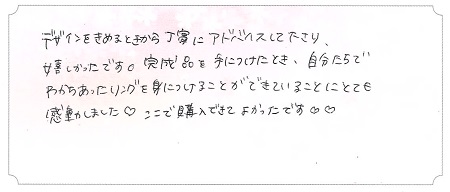 デザインをきめるときから丁寧にアドバイスして下さり、
嬉しかったです。完成品を手につけたとき、自分たちで
わかちあったリングを身につけることができていることにとても
感動しました♡ ここで購入できて よかったです♡♡